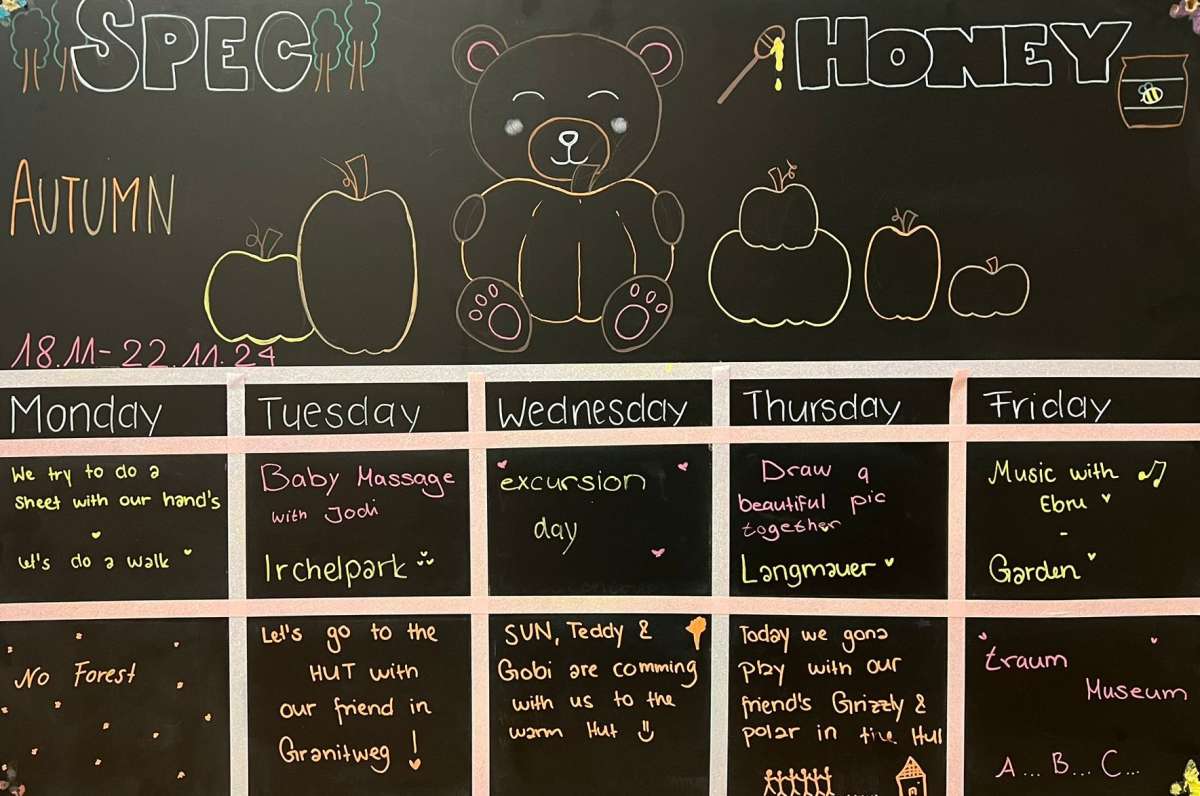 SPEC
HONEY
AUTUMN
18.11-22.11.24
Monday
Tuesday
Wednesday
Thursday
Friday
We try to do a
sheet with our hand's
Let's do a walk
Baby Massage
with Jodi
Irchelpark
excursion
day
Draw a
beautiful pic
together
Langmauer
Music with
Ebru
-
Garden
No Forest
Let's go to the
HUT with
our friend in
Granitweg!
SUN, Teddy &
Gobi are comming
with us to the
warm Hut
Today we gona
play with our
friend's Grizzly &
polar in the Hut
traum
Museum
A... B... C...